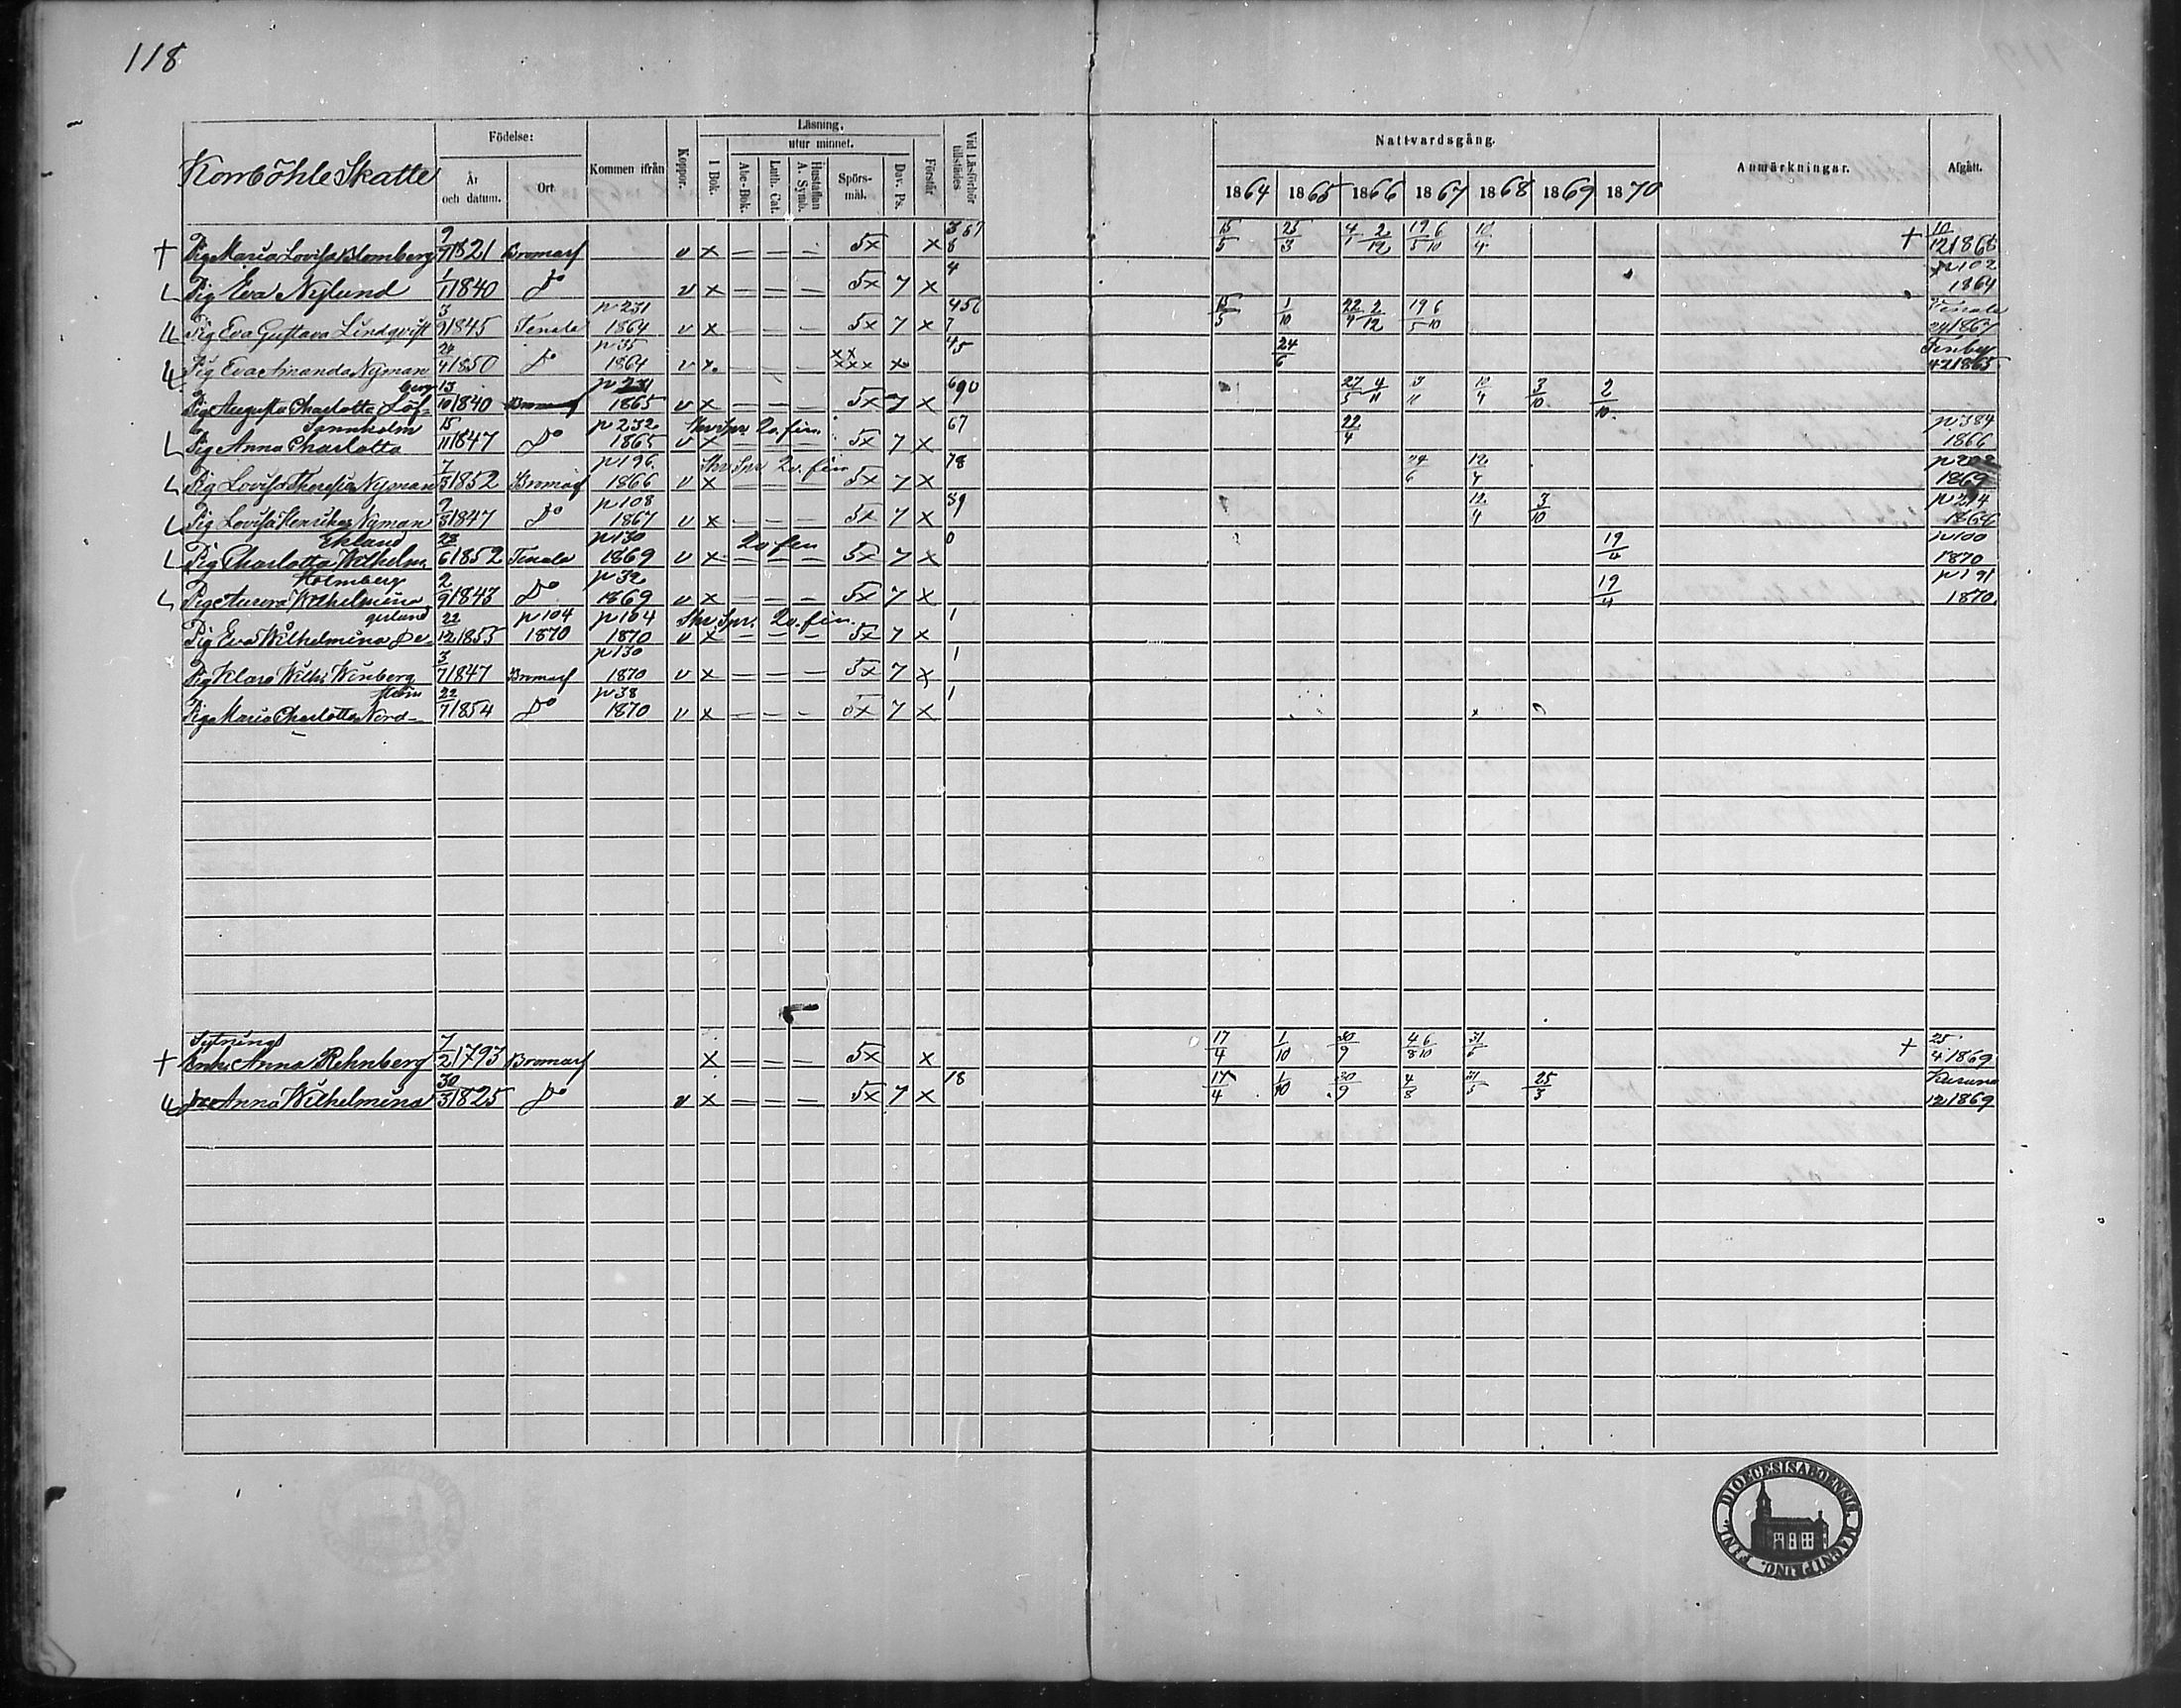 118
Läsning.
Födelse:
utur minnet.
Nattvardsgång.
Komböhle Skatte
År och datum.
Ort
Kommen ifrån
Koppor.
I Bok.
Abc-Bok.
Luth. Cat.
Hustaflan A. Symb.
Spörs-mål.
Dav. Ps.
Förstår
Vid Läsförhör tillstädes
1864 1865 1866 1867 1868 1869 1870
Anmärkningar.
Afgått.
+ Pig Maria Lovisa Blomberg 9/9 1821 Bromarf v x — — — 5x x 15/5 25/3 4/1 2/12 19/5 6/10 10/4 + 10/12 1868
Pig Eva Nylund 1/1 1840 Do v x — — — 5x 7 x 4 p 102 1864
Pig Eva Gustava Lindqvist 3/9 1845 Tenala p 231 1864 v x — — — 5x 7 x 15/5 1/10 22/4 2/12 19/5 6/10 Tenala 1867
Pig Eva Amanda Nyman 24/4 1850 Do p 35 1864 v x 45 24/6 Finby 1865
Pig Augusta Charlotta Löfberg 13/10 1840 Bromarf p 231 1865 v x — — — 5x 7 x 690 27/5 4/11 3/11 10/4 3/10 2/10
Pig Anna Charlotta Sannholm 15/11 1847 Do p 232 1865 v x — — — 2v. fin. 5x 7 x 67 22/4 p 384 1866
Pig Lovisa Theresia Nyman 7/5 1852 Bromarf p 196 1866 v x — — — 2v. fin 5x 7 x 78 24/6 12/4 1869
Pig Lovisa Henrika Nyman 9/3 1847 Do p 108 1867 v x — — — 5x 7 x 89 12/4 3/10
Pig Charlotta Wilhelm. Eklund 28/6 1852 Tenala p 130 1869 v x — — — 2v. fin 5x 7 x 0 19/4 p 100 1870
Pig Aurora Wilhelmina Holmberg 2/9 1843 Do p 32 1869 v x — — — 5x 7 x 19/4 p 191 1870
Pig Eva Wilhelmina Degerlund 22/12 1853 p 104 1870 p 164 1870 v x — — — 2v. fin. 5x 7 x 1
Pig Klara Wilh. Winberg 3/7 1847 Bromarf p 130 1870 v x — — — 5x 7 x 1
Pig Maria Charlotta Nord- 22/7 1854 Do p 38 1870 v x — — — 5x 7 x 1
Sytnings
+ Enk. Anna Rehnberg 7/2 1793 Bromarf x — — — 5x x 17/4 1/10 30/9 4/8 6/10 31/5 + 25/4 1869
Anna Wilhelmina 30/3 1825 Do v x — — — 5x 7 x 18 17/4 1/10 30/9 4/8 31/5 25/3 12 1869
DIOECESIS ABOENSIS. MAGNI PRINC. FINL.